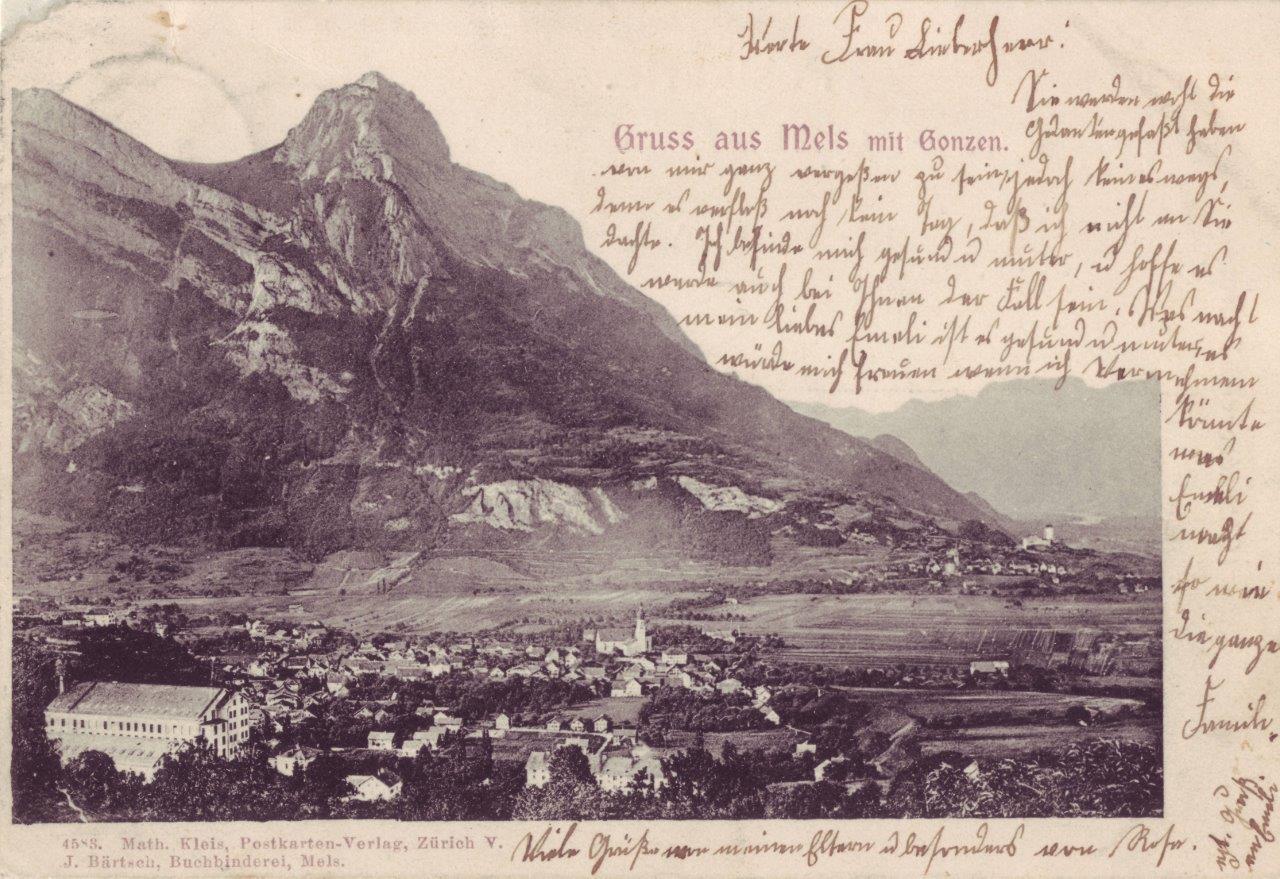 Werte Frau Lieberherr!
Sie werden wohl die
Gruss aus Mels mit Gonzen.
gefaßt haben
von mir ganz vergeßen zu sein, jedoch keineswegs,
denn es verfloß noch kein Tag, daß ich nicht an Sie
dachte. Ich befinde mich gesund u munter, u hoffe es
werde auch bei Ihnen der Fall sein. Was macht
mein liebes Emeli ist es gesund u munter, es
würde mich freuen wenn ich vernehmen
könnte
was
Emeli
macht
so wie
die ganze
Famili-
4583. Math. Kleis, Postkarten-Verlag, Zürich V.
J. Bärtsch, Buchbinderei, Mels.
Viele Grüße von meinen Eltern u besonders von Rosa.